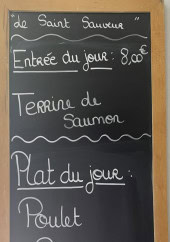 "Le Saint Sauveur"
Entrée du jour : 8,00€
Terrine de
Saumon
Plat du jour :
Poulet